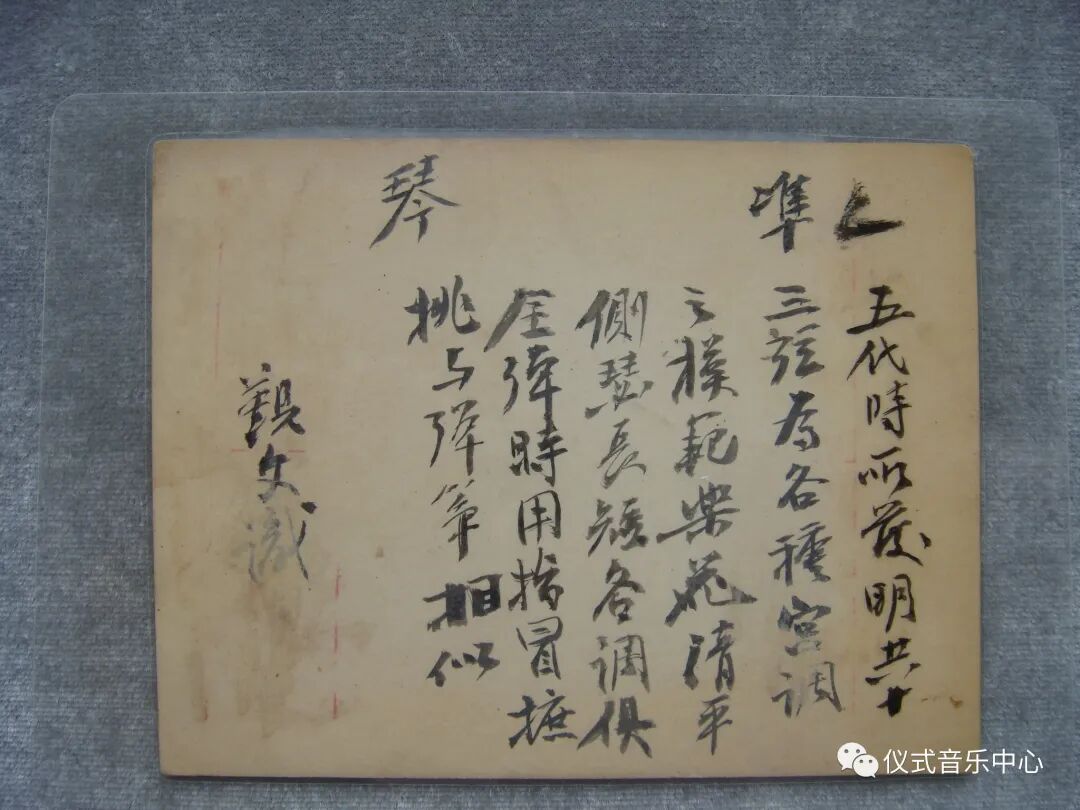 五代時所發明共十
準
三弦为各種宮調
之模範清平
側瑟長短各調俱
全弹時用指冒摭
挑与弹筝相似
琴
觀文識
仪式音乐中心